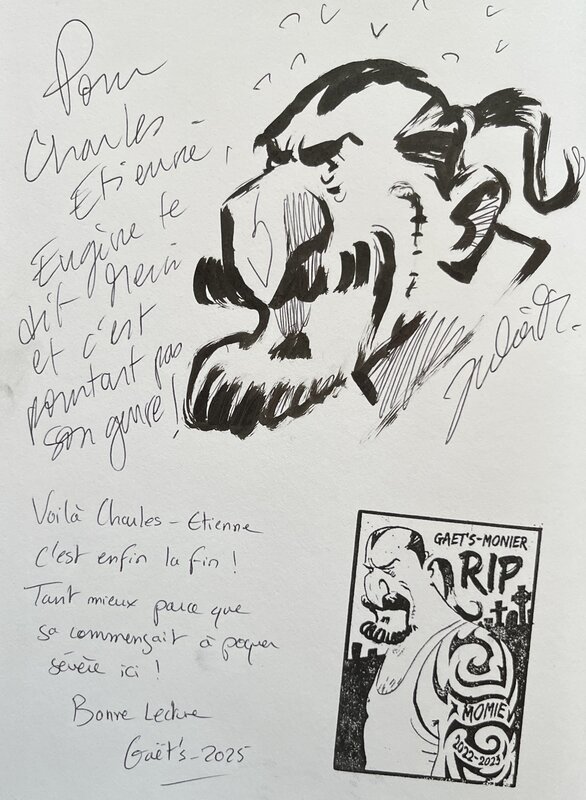 Pour
Charles-
Etienne,
Eugène te
dit merci
et c'est
pourtant pas
son genre !
Julien
Voilà Charles-Etienne
c'est enfin la fin !
Tant mieux parce que
sa commençait à poquer
sévère ici !
Bonne Lecture
Gaët's-2025
GAET'S-MONIER
RIP
MOMIE
2022-2023